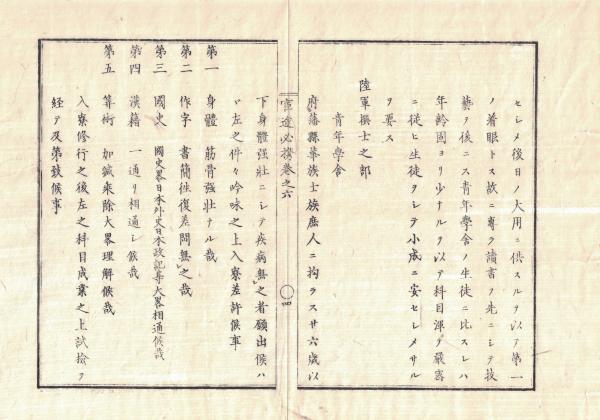 セシメ後日ノ大用ニ供スルヲ以テ第一
ノ着眼トス故ニ専ラ讀書ヲ先ニシテ技
藝ヲ後ニス青年學舎ノ生徒ニ比スレハ
年齢固ヨリ少ナルヲ以テ科目渾テ嚴密
ニ従ヒ生徒ヲシテ小成ニ安セシメサル
ヲ要ス
陸軍撰士之部
青年學舎
府藩縣華族士族庶人ニ拘ラス廿六歳以
官途必携巻之六
四
下身體强壮ニシテ疾病無之者願出候ハ
ヾ左之件々吟味之上入寮差許候事
第一 身體 筋骨强壮ナル哉
第二 作字 書簡往復差閊無之哉
第三 國史 國史畧日本外史日本政記等大畧相通候哉
第四 漢籍 一通リ相通シ候哉
第五 算術 加鍼乗除大畧理解候哉
入寮修行之後左之科目成業之上試撿ヲ
経テ及第致候事